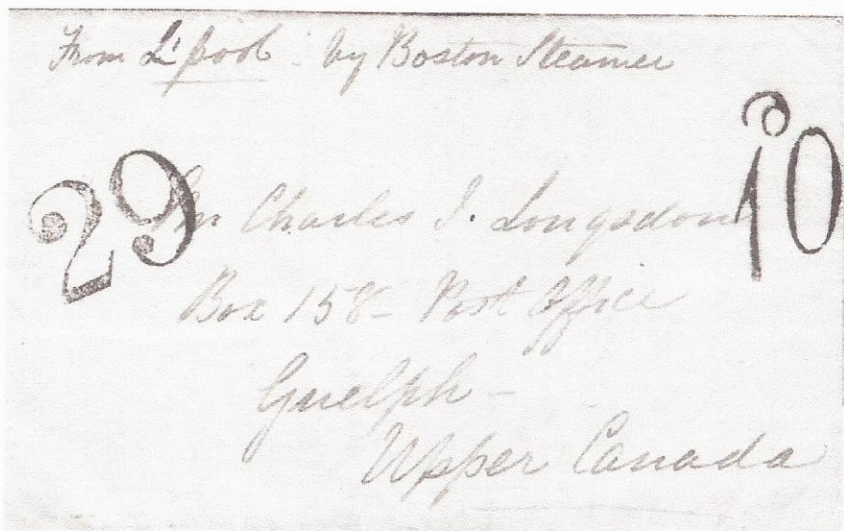 From L'pool by Boston Steamer
29
10
Mr Charles J. Longsdon
Box 158 - Post Office
Guelph -
Upper Canada